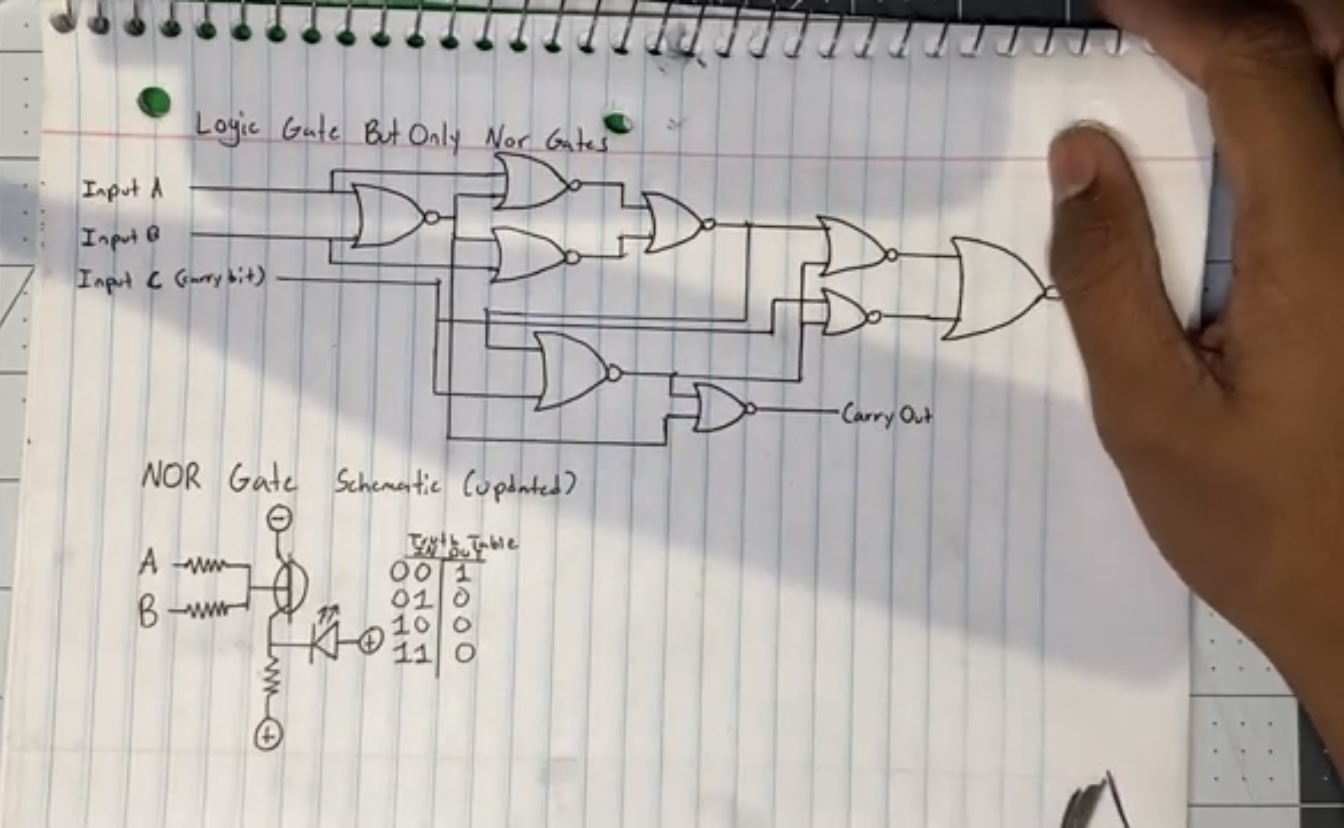 Logic Gate But Only Nor Gates
Input A
Input B
Input C (carry bit)
Carry Out
NOR Gate Schematic (updated)
A
B
Truth Table
IN OUT
00 1
01 0
10 0
11 0